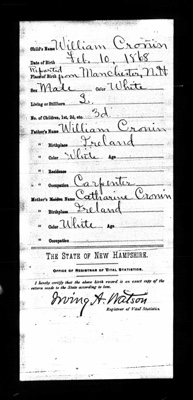 Child's Name William Cronin
Date of Birth Feb. 10, 1868
Reported
Place of Birth from Manchester, N.H
Sex Male Color White
Living or Stillborn L
No. of Children, 1st, 2d, etc. 3d
Father's Name William Cronin
" Birthplace Ireland
" Color White Age
" Residence
" Occupation Carpenter
Mother's Maiden Name Catharine Cronin
" Birthplace Ireland
" Color White Age
" Occupation
THE STATE OF NEW HAMPSHIRE.
OFFICE OF REGISTRAR OF VITAL STATISTICS.
I hereby certify that the above birth record is an exact copy of the
return made to the State according to law.
Irving A. Watson
Registrar of Vital Statistics.